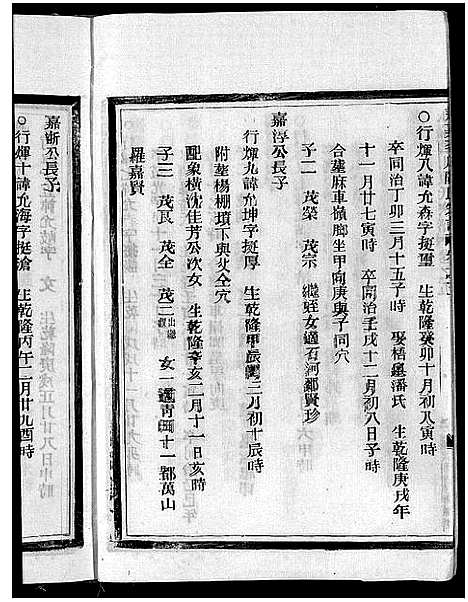 ○行煇八諱允森字挺璽 生乾隆癸卯十月初八寅時
卒同治丁卯三月十五子時 娶梧墓潘氏 生乾隆庚戌年
十一月廿七寅時 卒同治壬戌十一月初八日子時
合塟麻車嶺脚坐甲向庚與子同穴
子二 茂榮 茂宗 繼姪女適石河鄒賢珍
嘉淳公長子
行煇九諱允坤字挺厚 生乾隆甲辰三月初十辰時
附塟楊棚墳下與父仝穴
配象橫沈佳芳公次女 生乾隆辛亥二月十一日亥時
子三 茂艮 茂全 茂二出繼 女一適青田十一都萬山
羅嘉賢
嘉新公長子
○行煇十諱允海字挺滄 生乾隆丙午二月廿九酉時